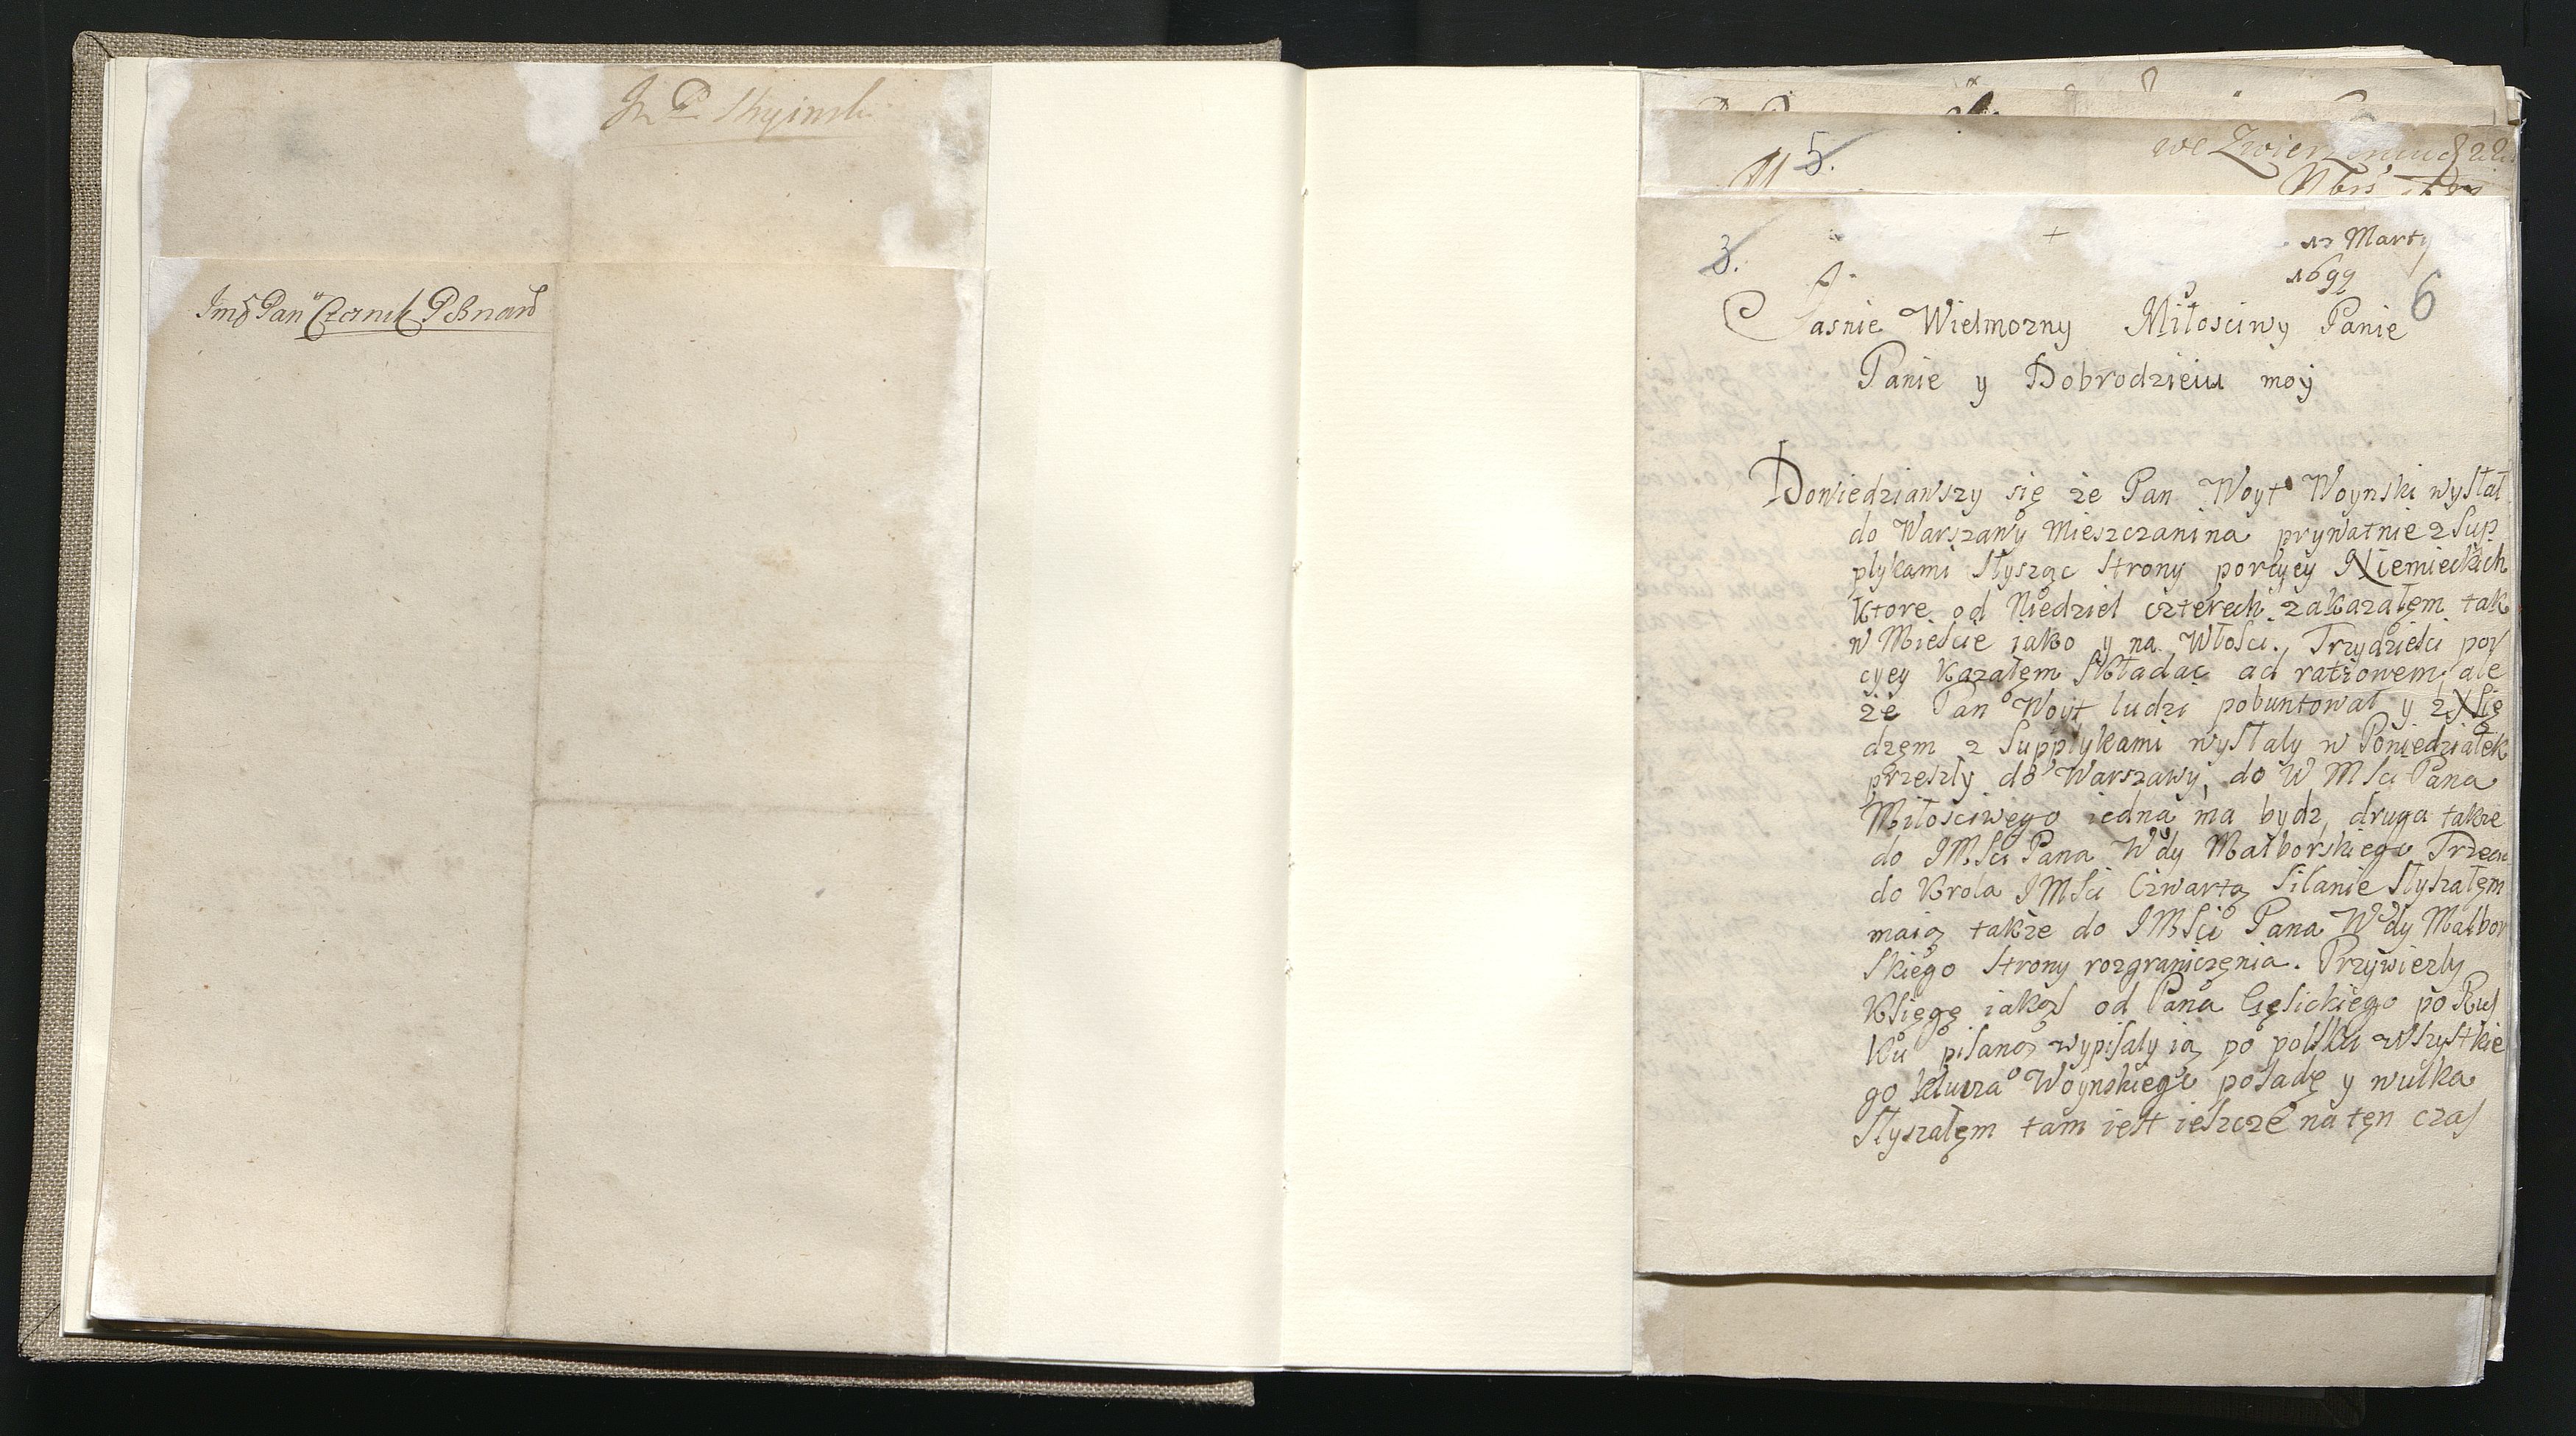 J P
Imś Pan Czarnik
5.
we
3.
+
12 Marty
1699
6
Jasnie Wielmozny Miłosciwy Panie
Panie y Dobrodzieiu moÿ
Dowiedziawszy się ze Pan Woyt Woynski wysłał
do Warszawy Mieszczanina prywatnie z Sup
plykami słysząc strony porcyey Niemieckich
ktore od Niedziel czterech zakazałęm tak
w Miescie iako y na Włosci. Trzydziesci por
cyey Kazałęm składac ad rationem, ale
że Pan Woyt ludzi pobuntował y z Xsię
dzęm z Supplykami wysłały w Poniedziałek
przeszły do Warszawy, do W M Sci Pana
Miłosciwego iedna ma bydz, druga takze
do IMSci Pana Wdy Malborskiego Trzecia
do Krola IMSci Czwartą Silanie słyszałęm
maią takze do IMSci Pana Wdy Malbor
skiego strony rozgraniczęnia. Przywiezly
Księgę iakąs od Pana Gęsickiego po Rus
ku pisaną wypisały ią po polsku wszystkie
go klucza Woynskiego posadę y wulka
słyszałęm tam iest ieszcze na tęn czas